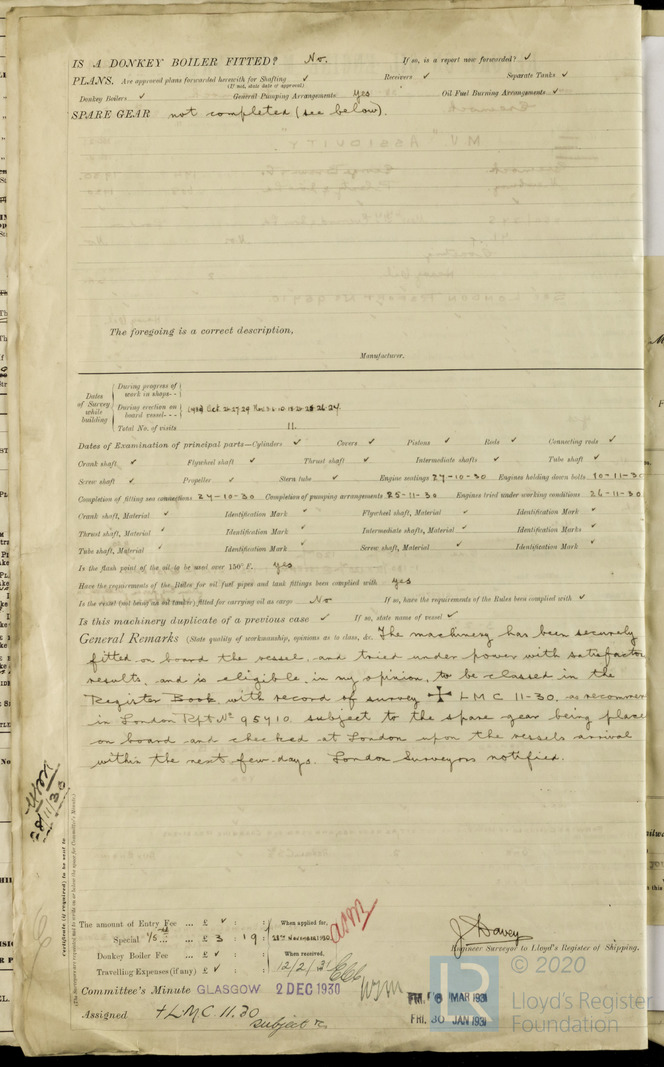 IS A DONKEY BOILER FITTED? No. If so, is a report now forwarded? ✓
PLANS. Are approved plans forwarded herewith for Shafting ✓ Receivers ✓ Separate Tanks ✓
(If not, state date of approval)
Donkey Boilers ✓ General Pumping Arrangements Yes Oil Fuel Burning Arrangements ✓
SPARE GEAR not completed (see below).
The foregoing is a correct description,
Manufacturer.
Dates of Survey while building
During progress of work in shops - -
During erection on board vessel - - -
Total No. of visits 11.
Dates of Examination of principal parts—Cylinders ✓ Covers ✓ Pistons ✓ Rods ✓ Connecting rods ✓
Crank shaft ✓ Flywheel shaft ✓ Thrust shaft ✓ Intermediate shafts ✓ Tube shaft ✓
Screw shaft ✓ Propeller ✓ Stern tube ✓ Engine seatings 27-10-30 Engines holding down bolts 10-11-30
Completion of fitting sea connections 24-10-30 Completion of pumping arrangements 25-11-30 Engines tried under working conditions 26-11-30
Crank shaft, Material ✓ Identification Mark ✓ Flywheel shaft, Material ✓ Identification Mark ✓
Thrust shaft, Material ✓ Identification Mark ✓ Intermediate shafts, Material ✓ Identification Marks ✓
Tube shaft, Material ✓ Identification Mark ✓ Screw shaft, Material ✓ Identification Mark ✓
Is the flash point of the oil to be used over 150° F. yes
Have the requirements of the Rules for oil fuel pipes and tank fittings been complied with yes
Is the vessel (not being an oil tanker) fitted for carrying oil as cargo No If so, have the requirements of the Rules been complied with ✓
Is this machinery duplicate of a previous case ✓ If so, state name of vessel ✓
General Remarks (State quality of workmanship, opinions as to class, &c. The machinery has been securely
fitted on board the vessel, and tried under power with satisfactory
results, and is eligible, in my opinion, to be classed in the
Register Book with record of survey + LMC 11-30. as recommen
in London Rpt No 95910 subject to the spare gear being place
on board and checked at London upon the vessels arrival
within the next few days. London Surveyors notified.
28/11/30
Certificate (if required) to be sent to
The amount of Entry Fee ... £ ✓ : : When applied for,
Special ... £ 3 : 19 : 28th November 1930
Donkey Boiler Fee ... £ ✓ : : When received,
Travelling Expenses (if any) £ ✓ : : 12/2/31
J. Davey
Engineer Surveyor to Lloyd's Register of Shipping.
Committee's Minute GLASGOW 2 DEC 1930
FRI. 6 MAR 1931
FRI. 30 JAN 1931
Assigned +LMC 11.30
subject
© 2020
Lloyd's Register
Foundation